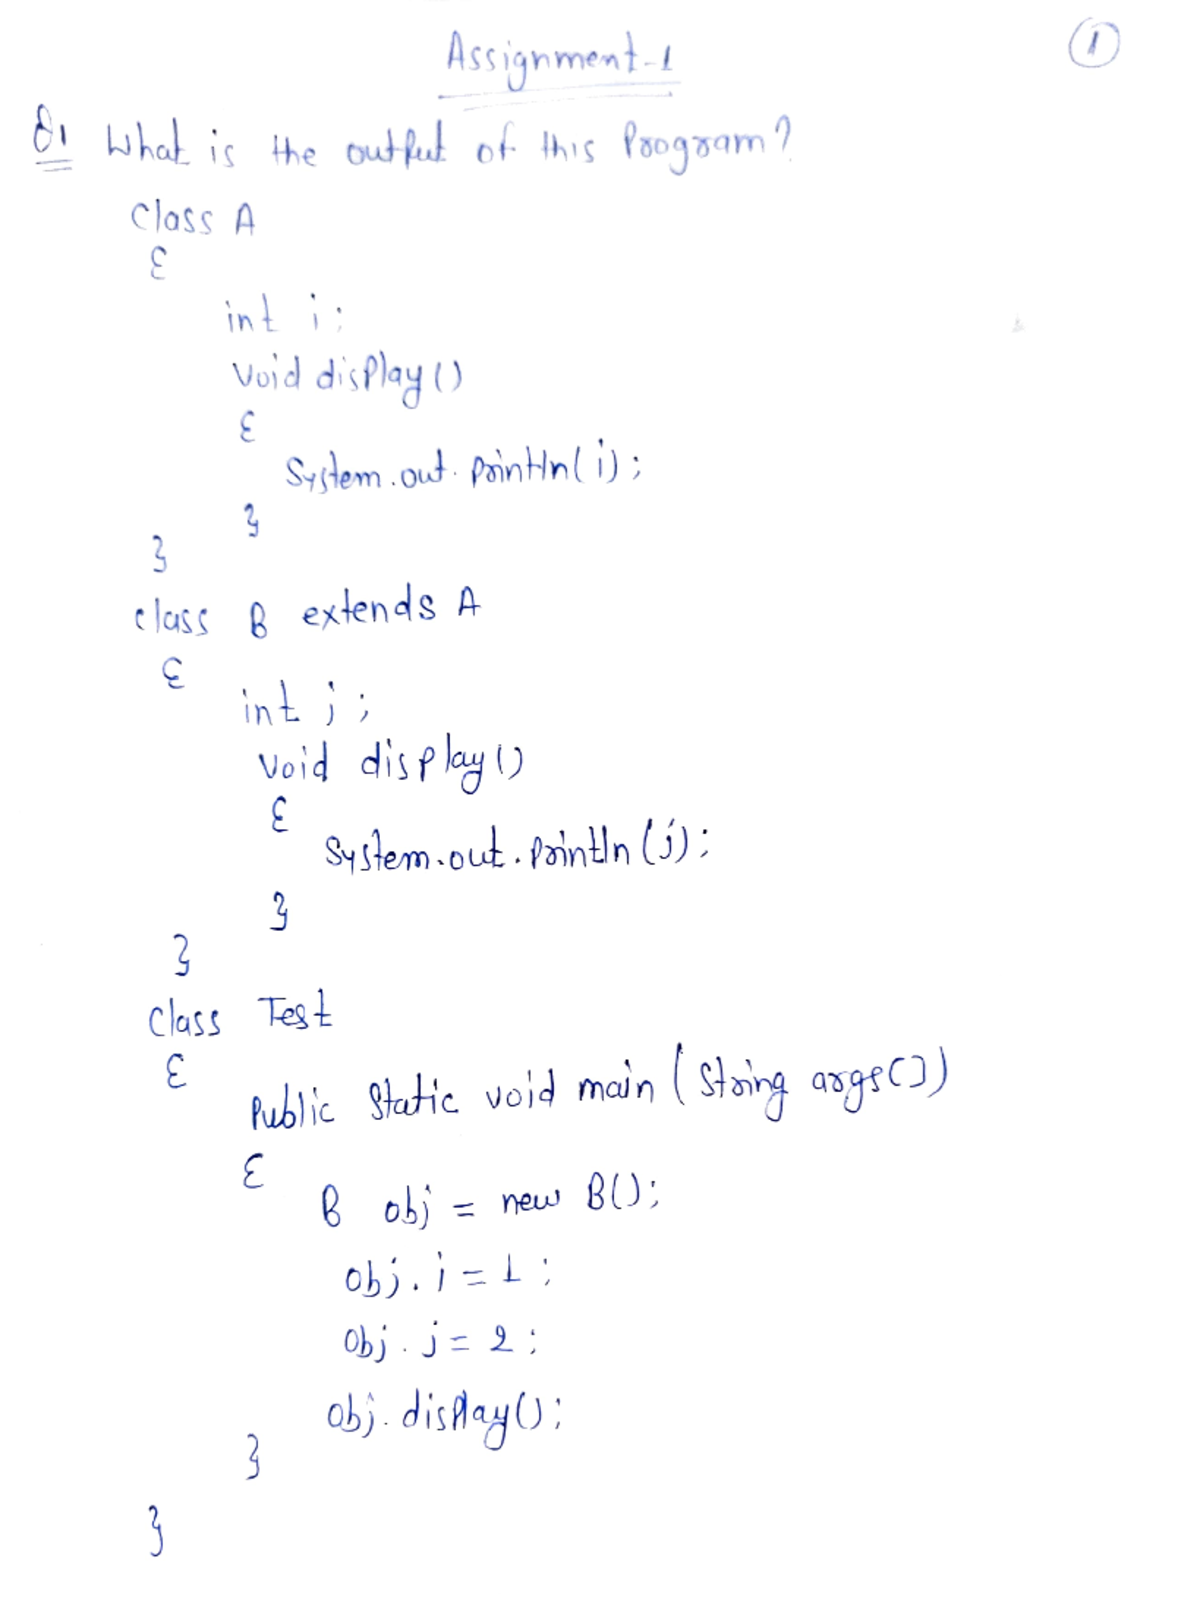 Assignment-1
1
Q1 What is the output of this Program?
Class A
{
int i;
Void display()
{
System.out.println(i);
}
}
class B extends A
{
int j;
Void display()
{
System.out.println(j);
}
}
Class Test
{
Public Static void main(String args[])
{
B obj = new B();
obj.i=1;
obj.j=2;
obj.display();
}
}